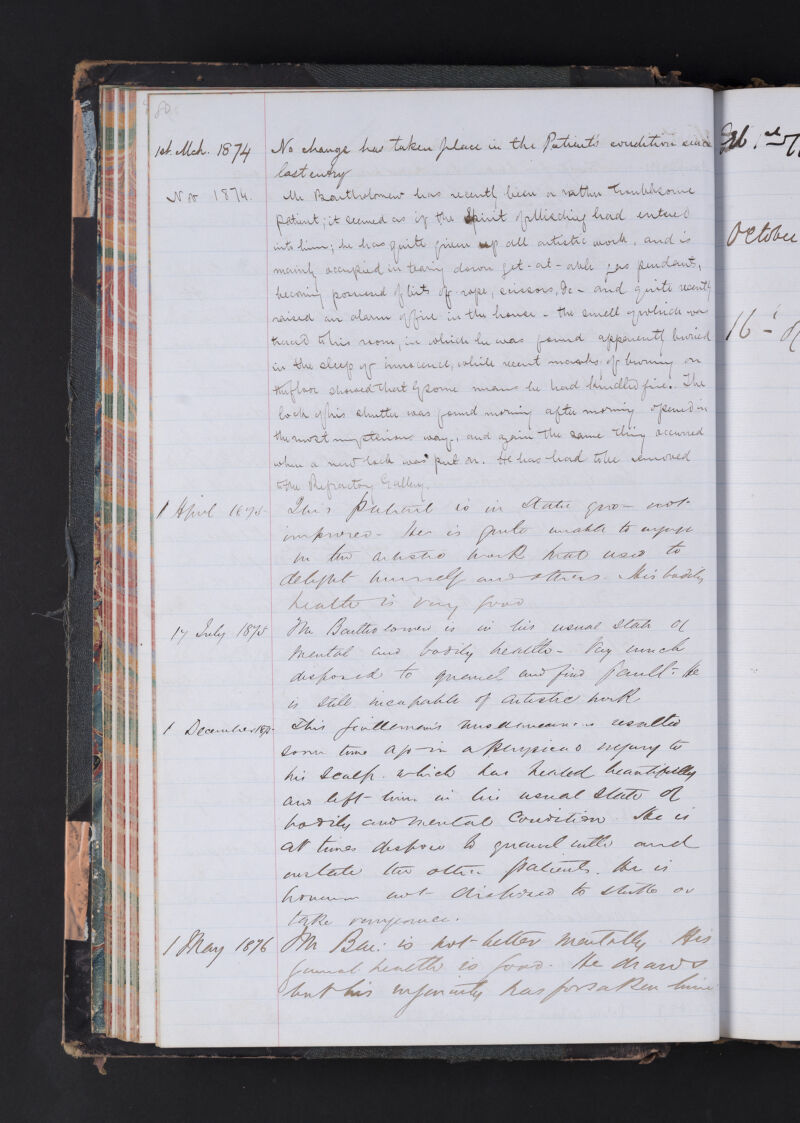 80
1st. Mch. 1874 No change has taken place in the Patient's condition since
last entry
Nov 1874. Mr Bartholomew has recently been a rather troublesome
patient; it seemed as if the Spirit of Mischief had entered
into him; he has quite given up all artistic work, and is
mainly occupied in tearing down get-at-able gas pendants,
becoming possessed of bits of rope, scissors, &c - and quite recently
raised an alarm of fire in the house - the smell of which was
traced to his room, in which he was found apparently buried
in the sleep of innocence, while recent marks of burning on
the floor showed that by some means he had kindled fire. The
lock of his shutter was found morning after morning opened in
the most mysterious way, and again the same thing occurred
when a new lock was put on. He has had to be removed
to the Refractory Gallery.
1 April 1875 This patient is in statu quo - not
improved - He is quite unable to engage
in the artistic work that used to
delight himself and others. His bodily
health is very good
17 July 1875 Mr Bartholomew is in his usual state of
mental and bodily health - Very much
disposed to quarrel and find fault. He
is still incapable of artistic work
1 December 1875 This gentleman's resulted
some time ago in a injury to
his scalp which has healed beautifully
and left him in his usual state of
bodily and mental condition. He is
at times disposed to quarrel with and
the other patients. He is
however not disposed to strike or
take vengeance.
1 May 1876 Mr Bar: is not better mentally His
general health is good. He draws
but his ingenuity has forsaken him
Feb 1st
October
16